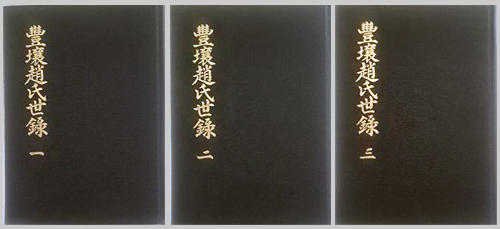 豐壤趙氏世錄 一
豐壤趙氏世錄 二
豐壤趙氏世錄 三